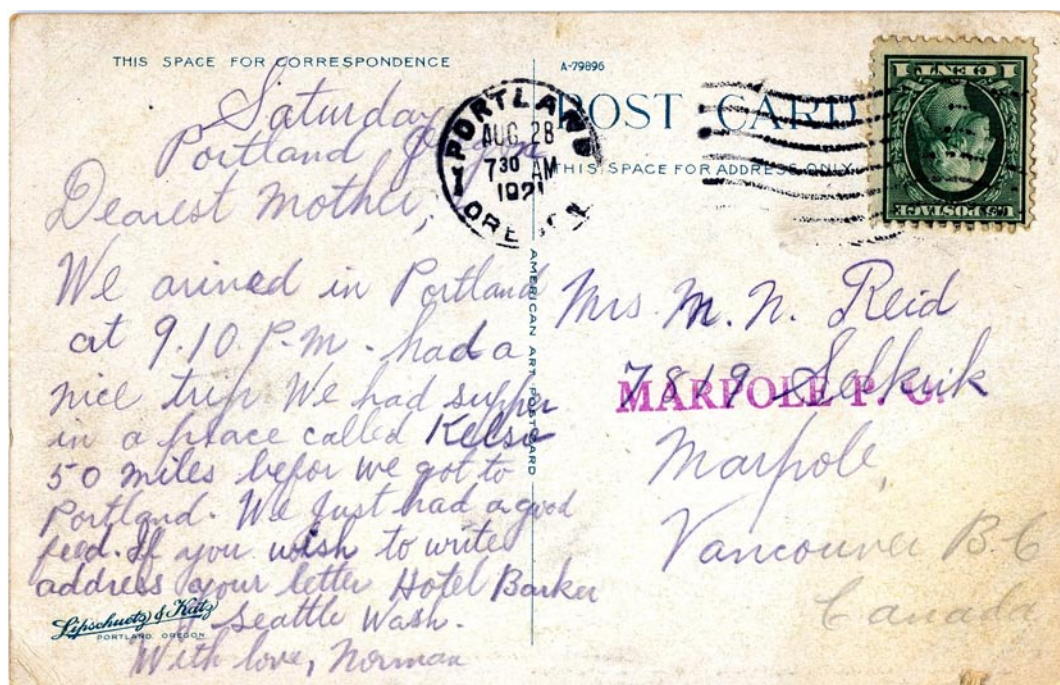 THIS SPACE FOR CORRESPONDENCE
Saturday
Portland Oregon
Dearest Mother,
We arived in Portland
at 9.10. P.M. had a
nice trip We had supper
in a place called Kelso
50 miles befor we got to
Portland. We Just had a good
feed. If you wish to write
address your letter Hotel Barker
Seattle Wash.
With love, Norman
Lipschuetz & Katz
PORTLAND, OREGON
AMERICAN ART POSTCARD
A-79896
POST CARD
THIS SPACE FOR ADDRESS ONLY
PORTLAND
AUG 28
7 30 AM
1921
OREGON
U.S. POSTAGE
1 CENT 1
Mrs. M. N. Reid
7819 Selkirk
MARPOLE P. O.
Marpole,
Vancouver B.C
Canada